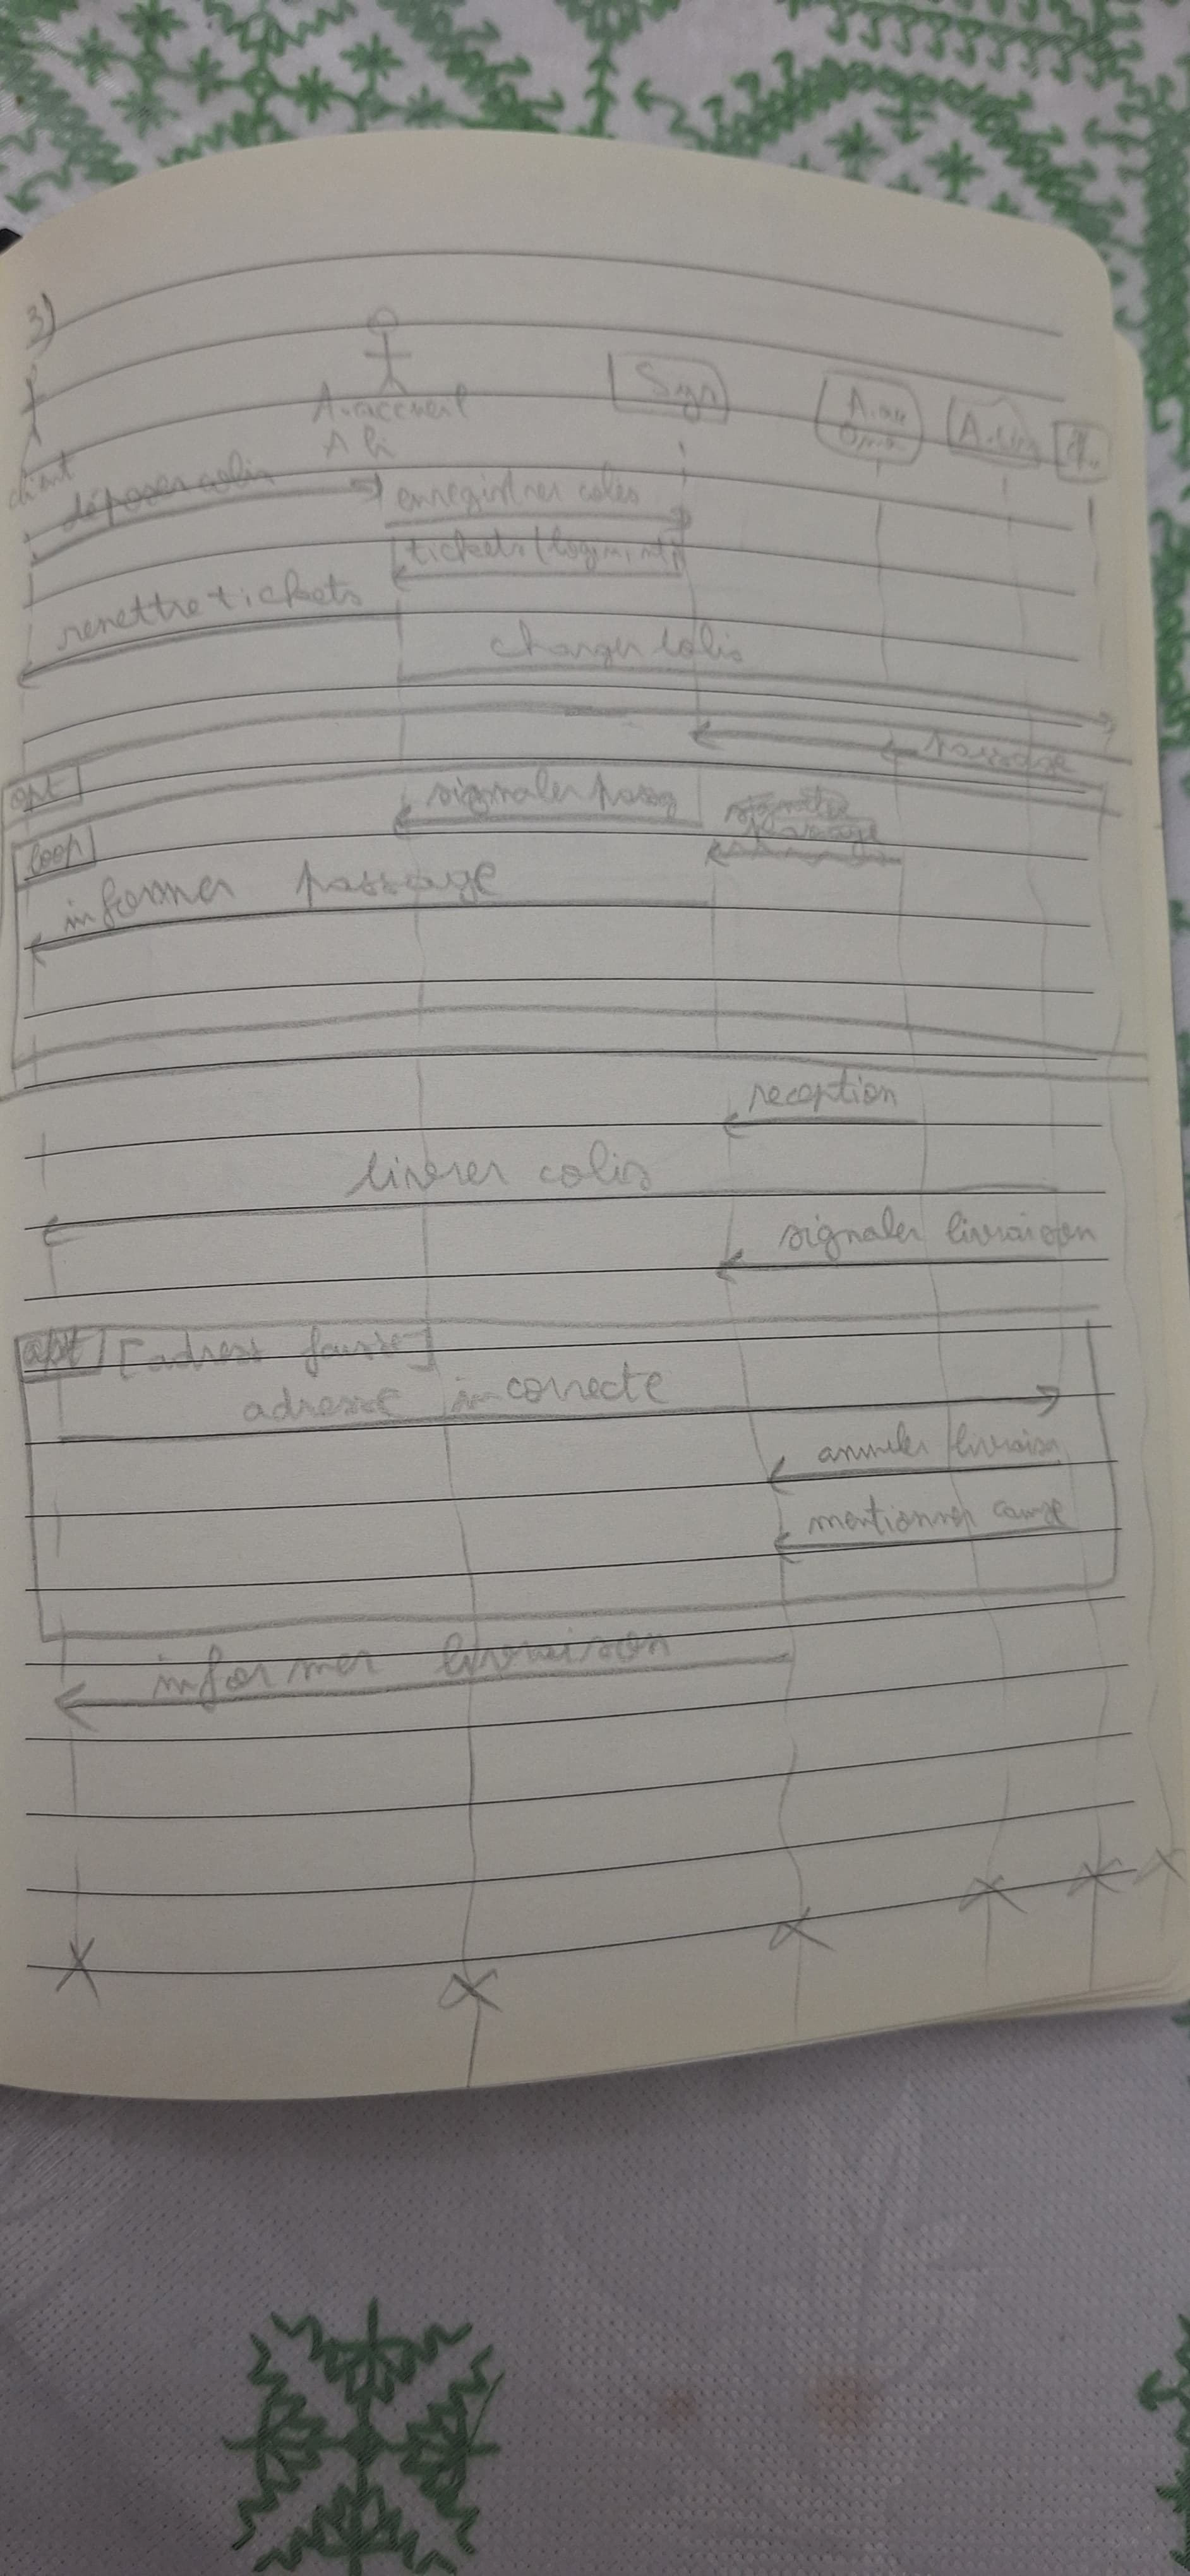 3)
client
A.accueil
Ali
déposer colis
enregistrer colis
remettre tickets
charger colis
passage
opt
signaler passag
loop
informer passage
reception
livrer colis
signaler livraison
opt [adress fausse]
adresse incorrecte
annuler livraison
mentionner cause
informer livraison